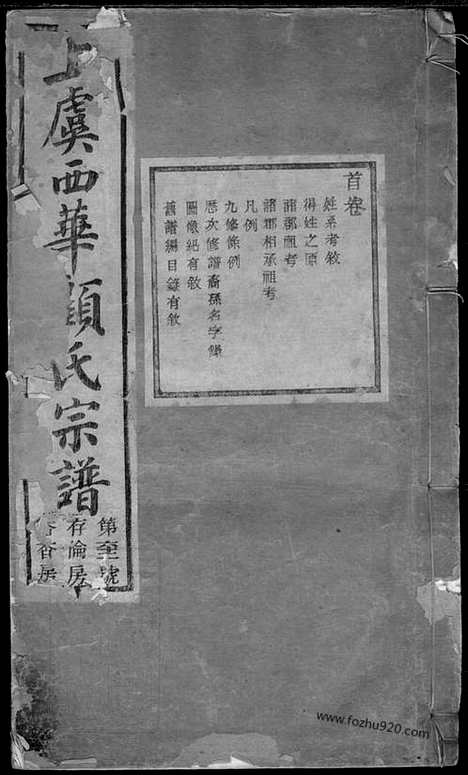 上虞西華顧氏宗譜
第 號
存倫房
首卷
姓系考敘
得姓之原
諸郡相承祖考
凡例
九修條例
歷次修譜裔孫名字錄
圖像總有敘
舊譜編目錄有敘
www.fozhu920.com